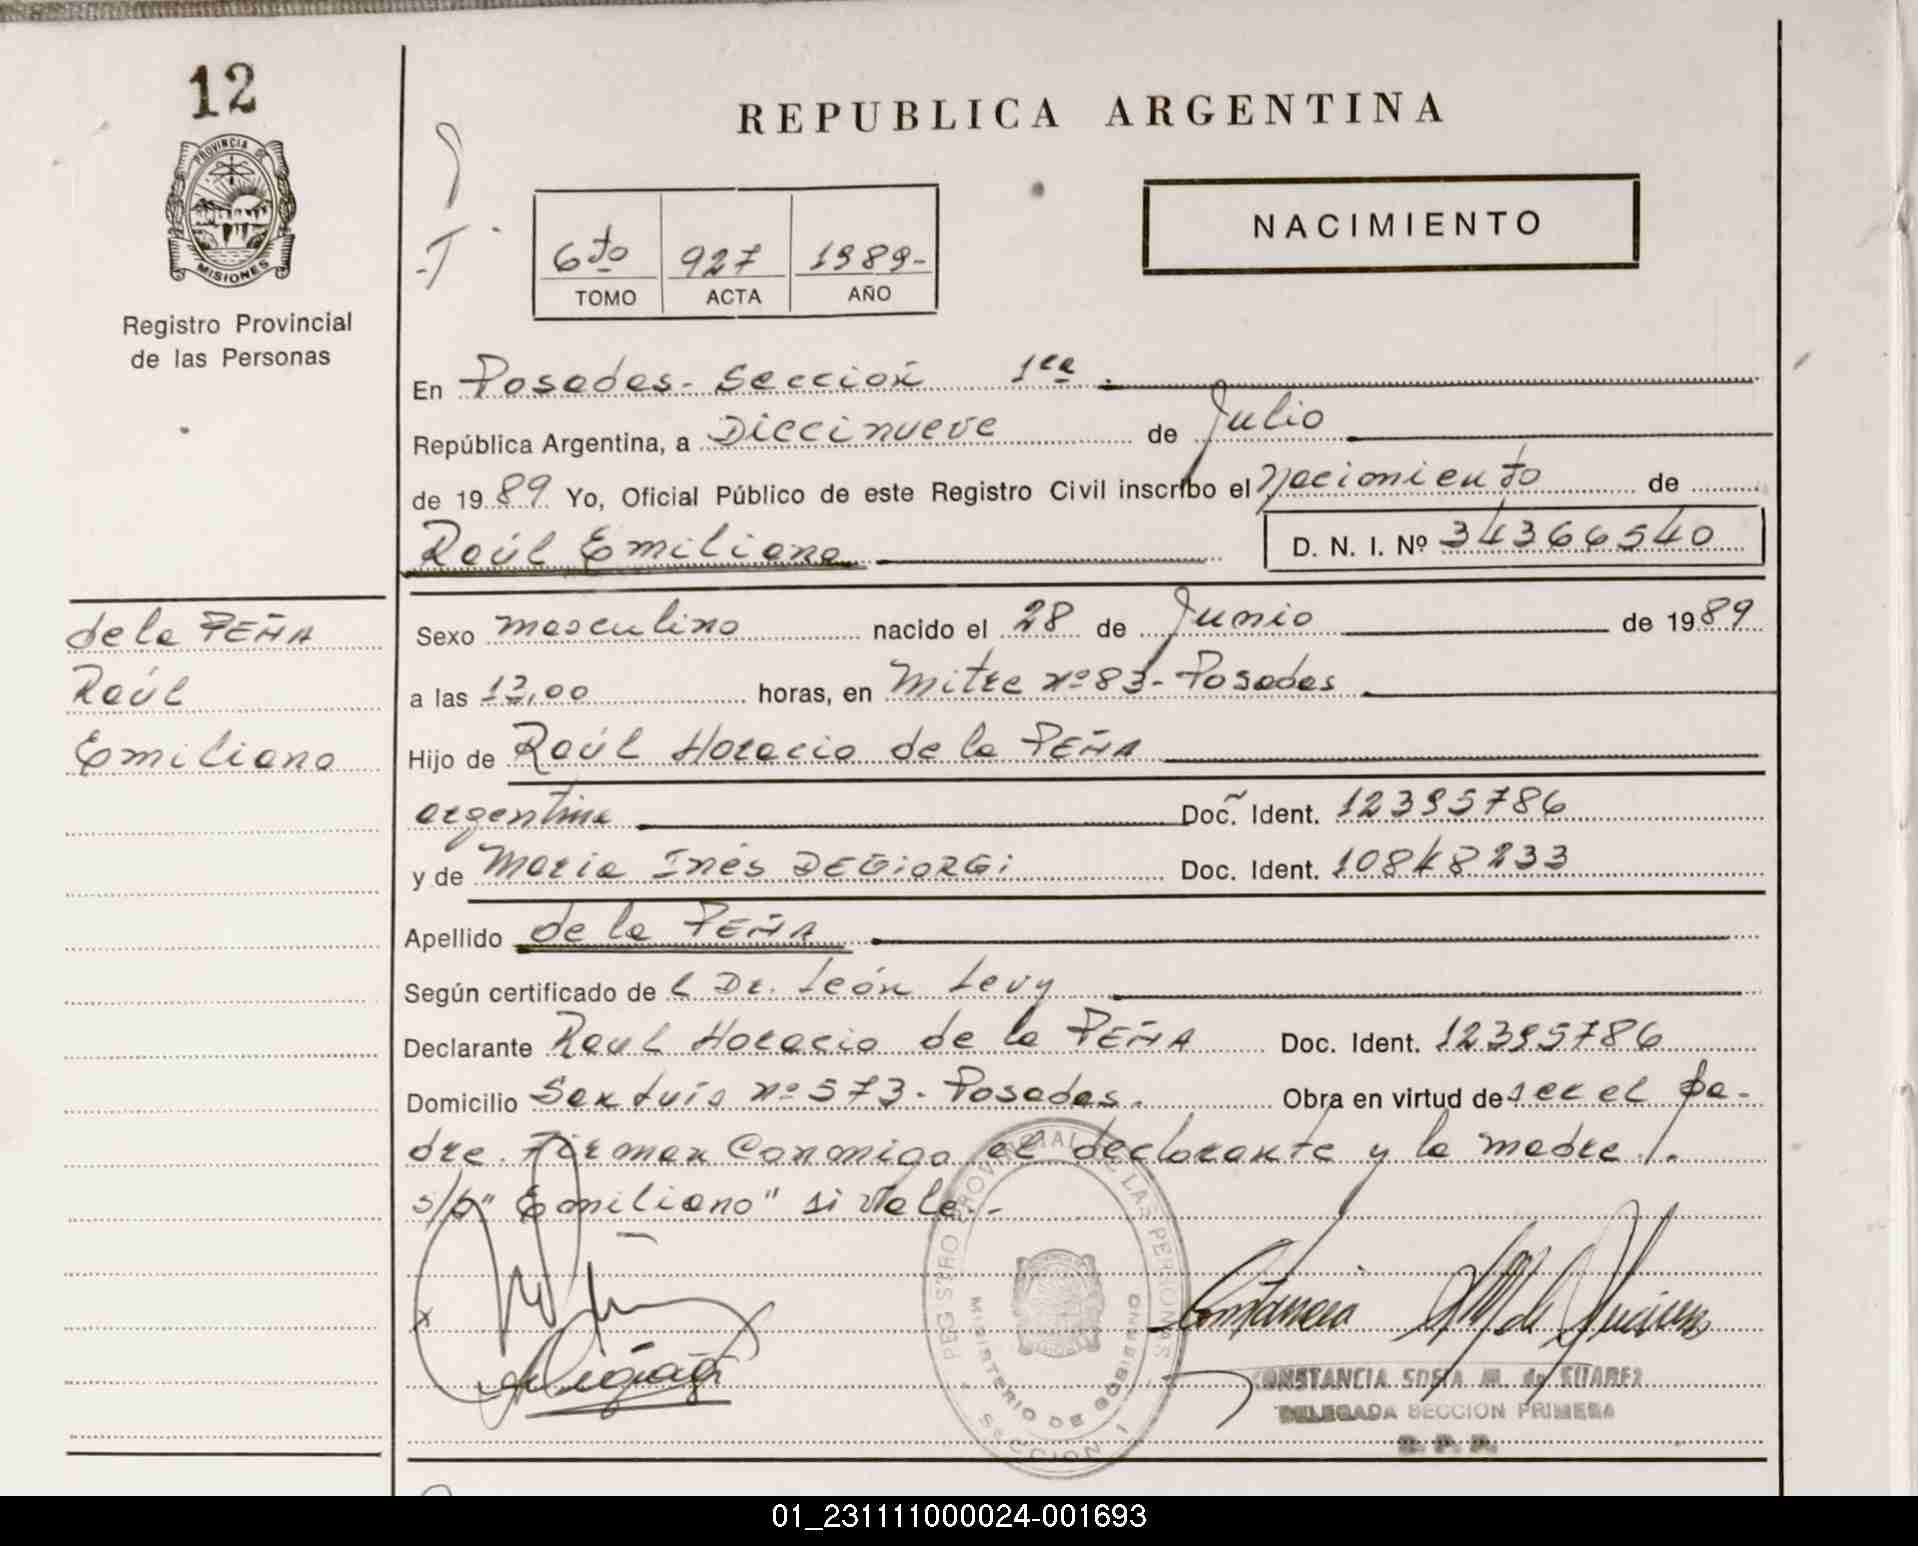 12
PROVINCIA DE
MISIONES
Registro Provincial
de las Personas
REPUBLICA ARGENTINA
NACIMIENTO
6to 927 1989-
TOMO ACTA AÑO
En Posadas- Sección 1ra.
República Argentina, a Diecinueve de Julio
de 1989 Yo, Oficial Público de este Registro Civil inscribo el Nacimiento de
Raúl Emiliano D. N. I. Nº 34366540
de la PEÑA
Raúl
Emiliano
Sexo masculino nacido el 28 de Junio de 1989
a las 13,00 horas, en Mitre Nº 83- Posadas
Hijo de Raúl Horacio de la PEÑA
argentina Doc. Ident. 12395786
y de María Inés DEGIORGI Doc. Ident. 10848233
Apellido de la PEÑA
Según certificado del Dr. León Levy
Declarante Raul Horacio de la PEÑA Doc. Ident. 12395786
Domicilio San Luís Nº 573- Posadas. Obra en virtud de ser el pa-
dre. Firman Conmigo el declarante y la madre /.
s/b "Emiliano" si vale.-
REGISTRO PROVINCIAL DE LAS PERSONAS
MINISTERIO DE GOBIERNO
SECCION 1
CONSTANCIA SOSA M. de SUAREZ
DELEGADA SECCION PRIMERA
R. P. P.
01_231111000024-001693